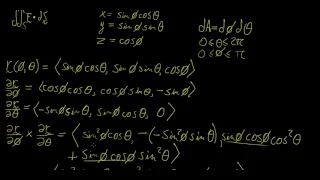 ∬_S F · dS
x = sinφcosθ
y = sinφsinθ
z = cosφ
dA = dφdθ
0 ≤ θ ≤ 2π
0 ≤ φ ≤ π
r(φ,θ) = ⟨sinφcosθ, sinφsinθ, cosφ⟩
∂r/∂φ = ⟨cosφcosθ, cosφsinθ, -sinφ⟩
∂r/∂θ = ⟨-sinφsinθ, sinφcosθ, 0⟩
∂r/∂φ × ∂r/∂θ = ⟨sin²φcosθ, -(-sin²φsinθ), sinφcosφcos²θ
+ sinφcosφsin²θ⟩